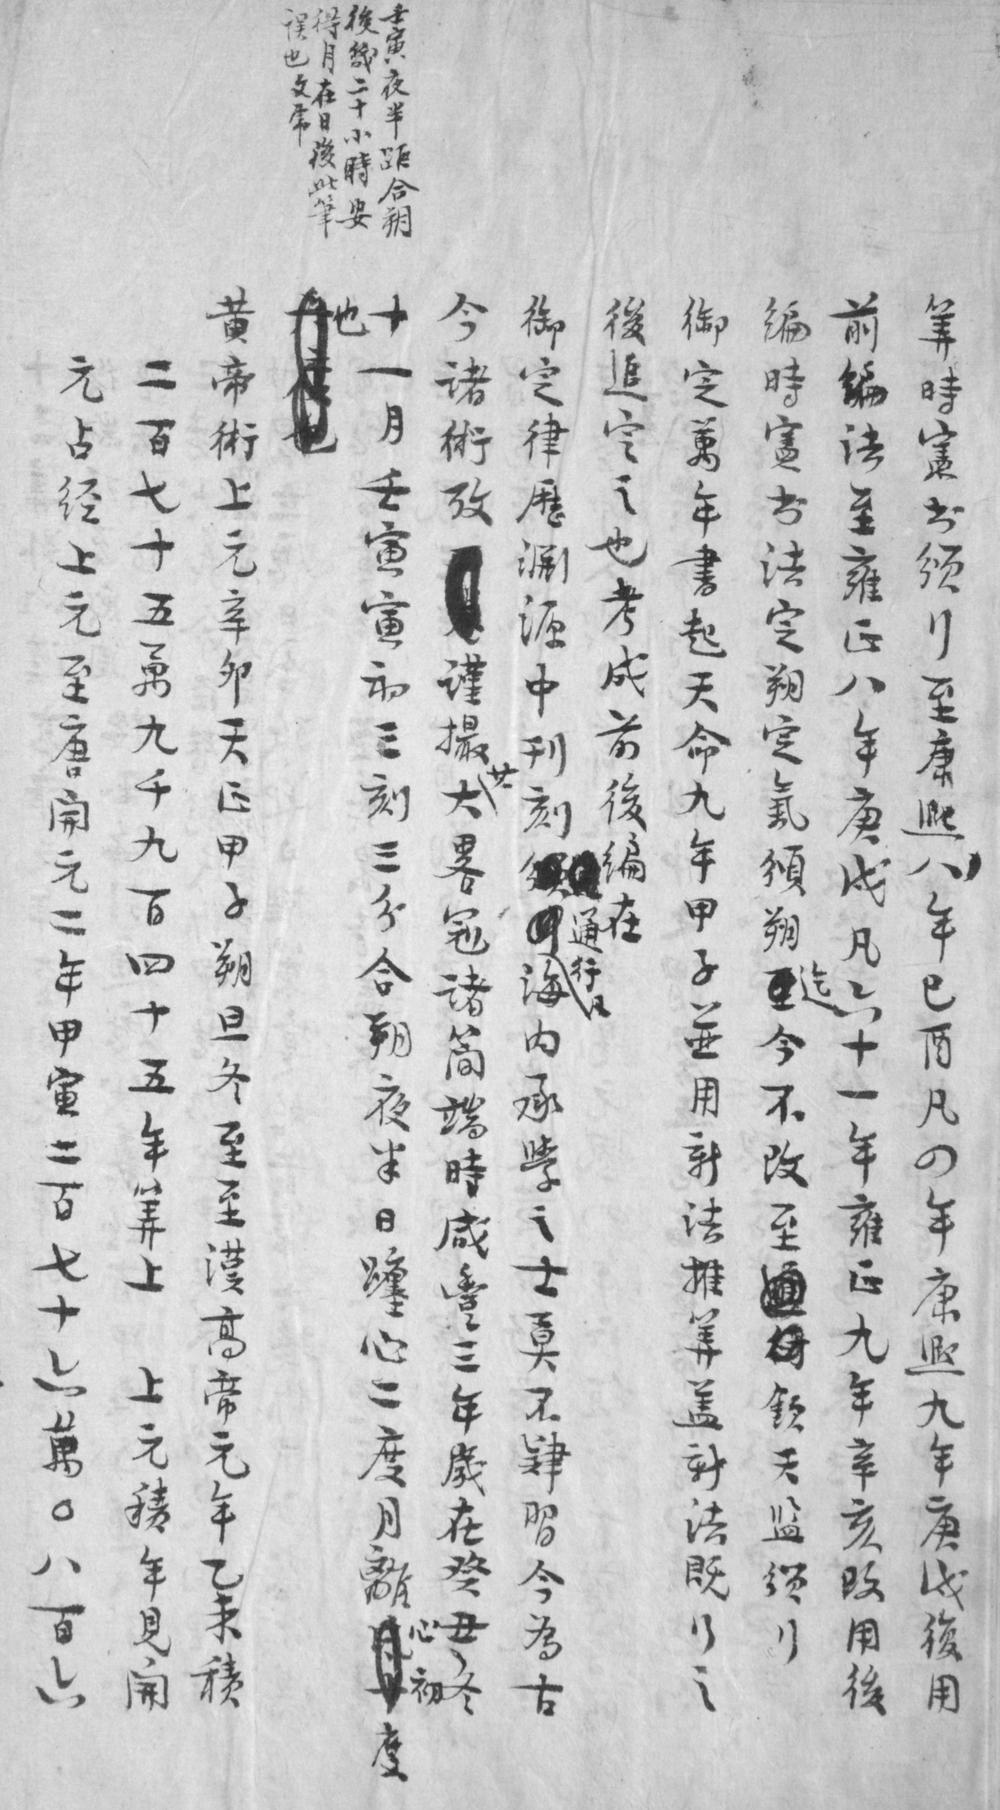 壬寅夜半距合朔
後幾二十小時安
得月在日後此筆
誤也文席
筭時憲书頒行至康熙八年己酉凡四年康熙九年庚戌復用
前編法至雍正八年庚戌凡六十一年雍正九年辛亥改用後
編時憲书法定朔定氣頒朔迄今不改至欽天監頒行
御定萬年書起天命九年甲子並用新法推筭盖新法既行之
後追定之也考成前後編在
御定律歷淵源中刊刻通行海内承學之士莫不肄習今為古
今諸術攷謹撮其大畧冠諸简端時咸豐三年歲在癸丑冬
十一月壬寅寅初三刻三分合朔夜半日躔心二度月離心初度
也
黄帝術上元辛卯天正甲子朔旦冬至至漢高帝元年乙未積
二百七十五萬九千九百四十五年筭上 上元積年見開
元占经上元至唐開元二年甲寅二百七十六萬〇八百六